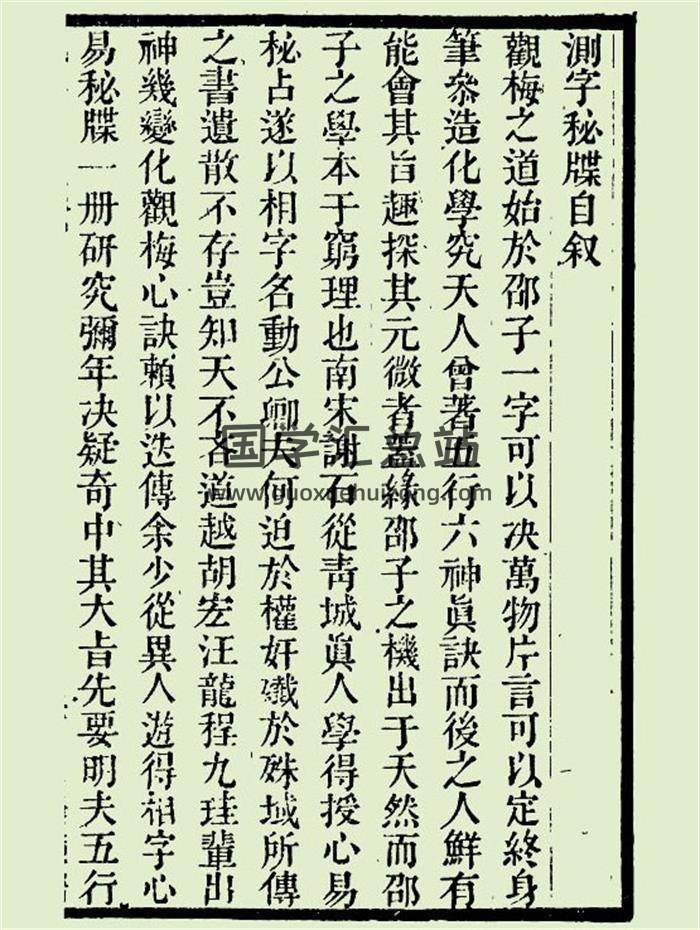 測字秘牒自叙
觀梅之道始於邵子一字可以决萬物片言可以定終身
筆叅造化學究天人曾著五行六神眞訣而後之人鮮有
能會其旨趣探其元微者蓋緣邵子之機出于天然而邵
子之學本于窮理也南宋謝石從靑城眞人學得授心易
秘占遂以相字名動公卿夫何迫於權奸殱於殊域所傳
之書遺散不存豈知天不吝道越胡宏汪龍程九珪輩出
神幾變化觀梅心訣賴以迭傳余少從異人遊得相字心
易秘牒一册研究彌年决疑奇中其大旨先要明夫五行
国学汇总站
www.guoxuehuizong.com